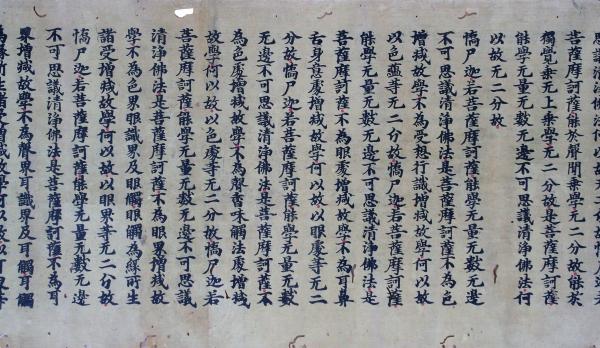 菩薩摩訶薩能於聲聞乘學无二分故能於
獨覺乘无上乘學无二分故是菩薩摩訶薩
能學无量无數无邊不可思議清淨佛法何
以故无二分故
憍尸迦若菩薩摩訶薩能學无量无數无邊
不可思議清淨佛法是菩薩摩訶薩不為色
增減故學不為受想行識增減故學何以故
以色蘊等无二分故憍尸迦若菩薩摩訶薩
能學无量无數无邊不可思議清淨佛法是
菩薩摩訶薩不為眼處增減故學不為耳鼻
舌身意處增減故學何以故以眼處等无二
分故憍尸迦若菩薩摩訶薩能學无量无數
无邊不可思議清淨佛法是菩薩摩訶薩不
為色處增減故學不為聲香味觸法處增減
故學何以故以色處等无二分故憍尸迦若
菩薩摩訶薩能學无量无數无邊不可思議
清淨佛法是菩薩摩訶薩不為眼界增減故
學不為色界眼識界及眼觸眼觸為緣所生
諸受增減故學何以故以眼界等无二分故
憍尸迦若菩薩摩訶薩能學无量无數无邊
不可思議清淨佛法是菩薩摩訶薩不為耳
界增減故學不為聲界耳識界及耳觸耳觸